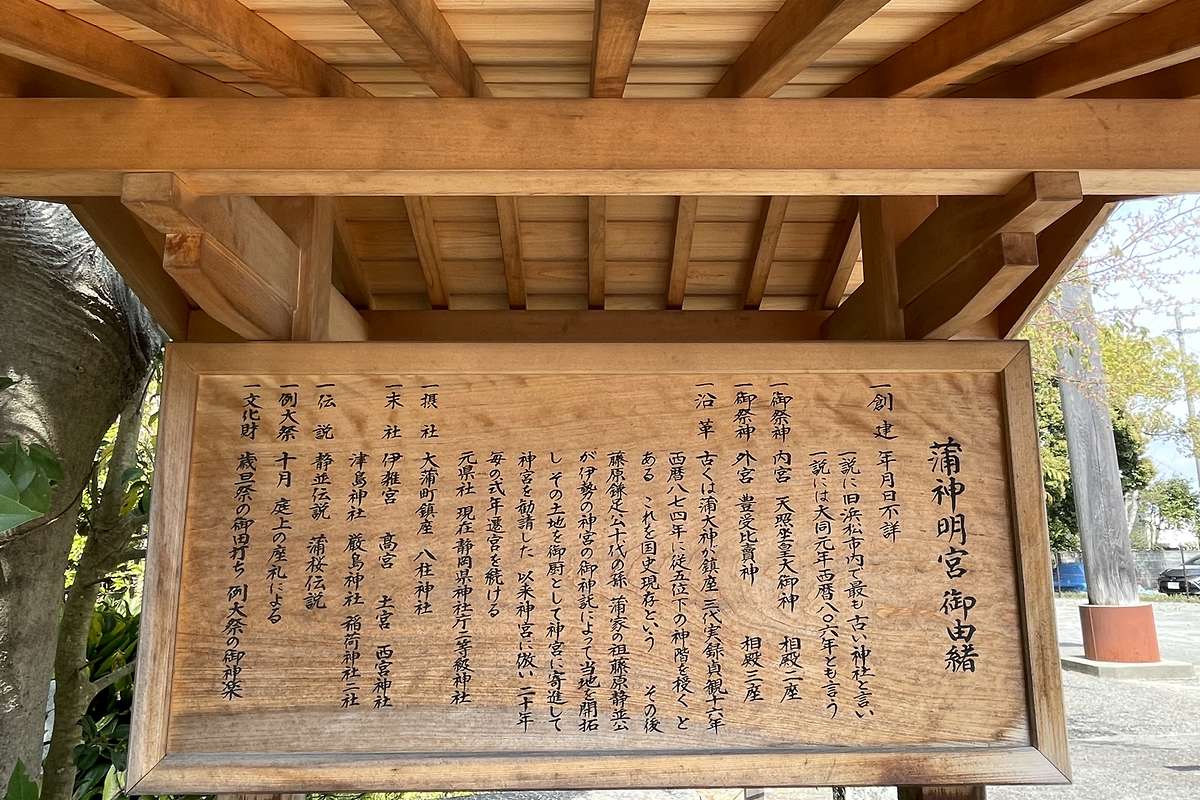 蒲神明宮 御由緒
一創建 年月日不詳
一説に旧浜松市内で最も古い神社と言い
一説には大同元年西暦八〇六年とも言う
一御祭神 内宮 天照坐皇大御神 相殿二座
一御祭神 外宮 豊受比賣神 相殿三座
一沿革 古くは蒲大神が鎮座 三代実録貞観十六年
西暦八七四年に従五位下の神階を授く と
ある これを国史現存という その後
藤原鎌足公十代の孫 蒲家の祖藤原静並公
が伊勢の神宮の御神託によって当地を開拓
し その土地を御厨として神宮に寄進して
神宮を勧請した 以来神宮に倣い 二十年
毎の式年遷宮を続ける
元県社 現在静岡県神社庁二等級神社
一摂社 大蒲町鎮座 八柱神社
一末社 伊雑宮 高宮 土宮 西宮神社
津島神社 厳島神社 稲荷神社二社
一伝説 静並伝説 蒲桜伝説
一例大祭 十月 庭上の座礼による
一文化財 歳旦祭の御田打ち 例大祭の御神楽